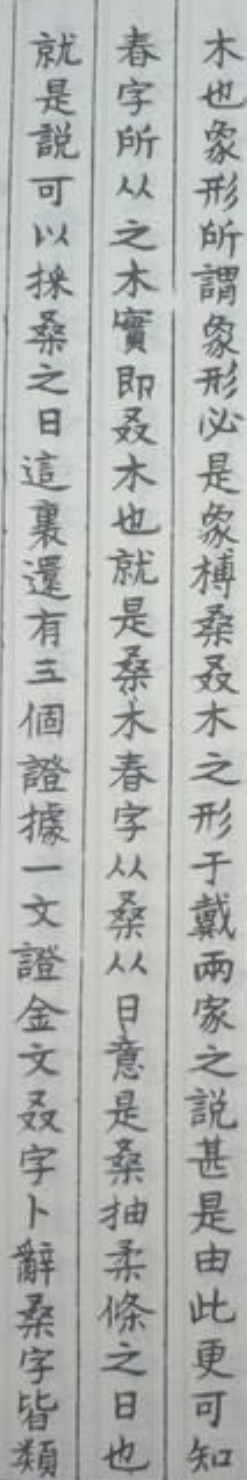 木也象形所謂象形必是象榑桑叒木之形于戴兩家之説甚是由此更可知
春字所从之木實即叒木也就是桑木春字从桑从日意是桑抽柔條之日也
就是説可以採桑之日這裏還有三個證據一文證金文叒字卜辭桑字皆類